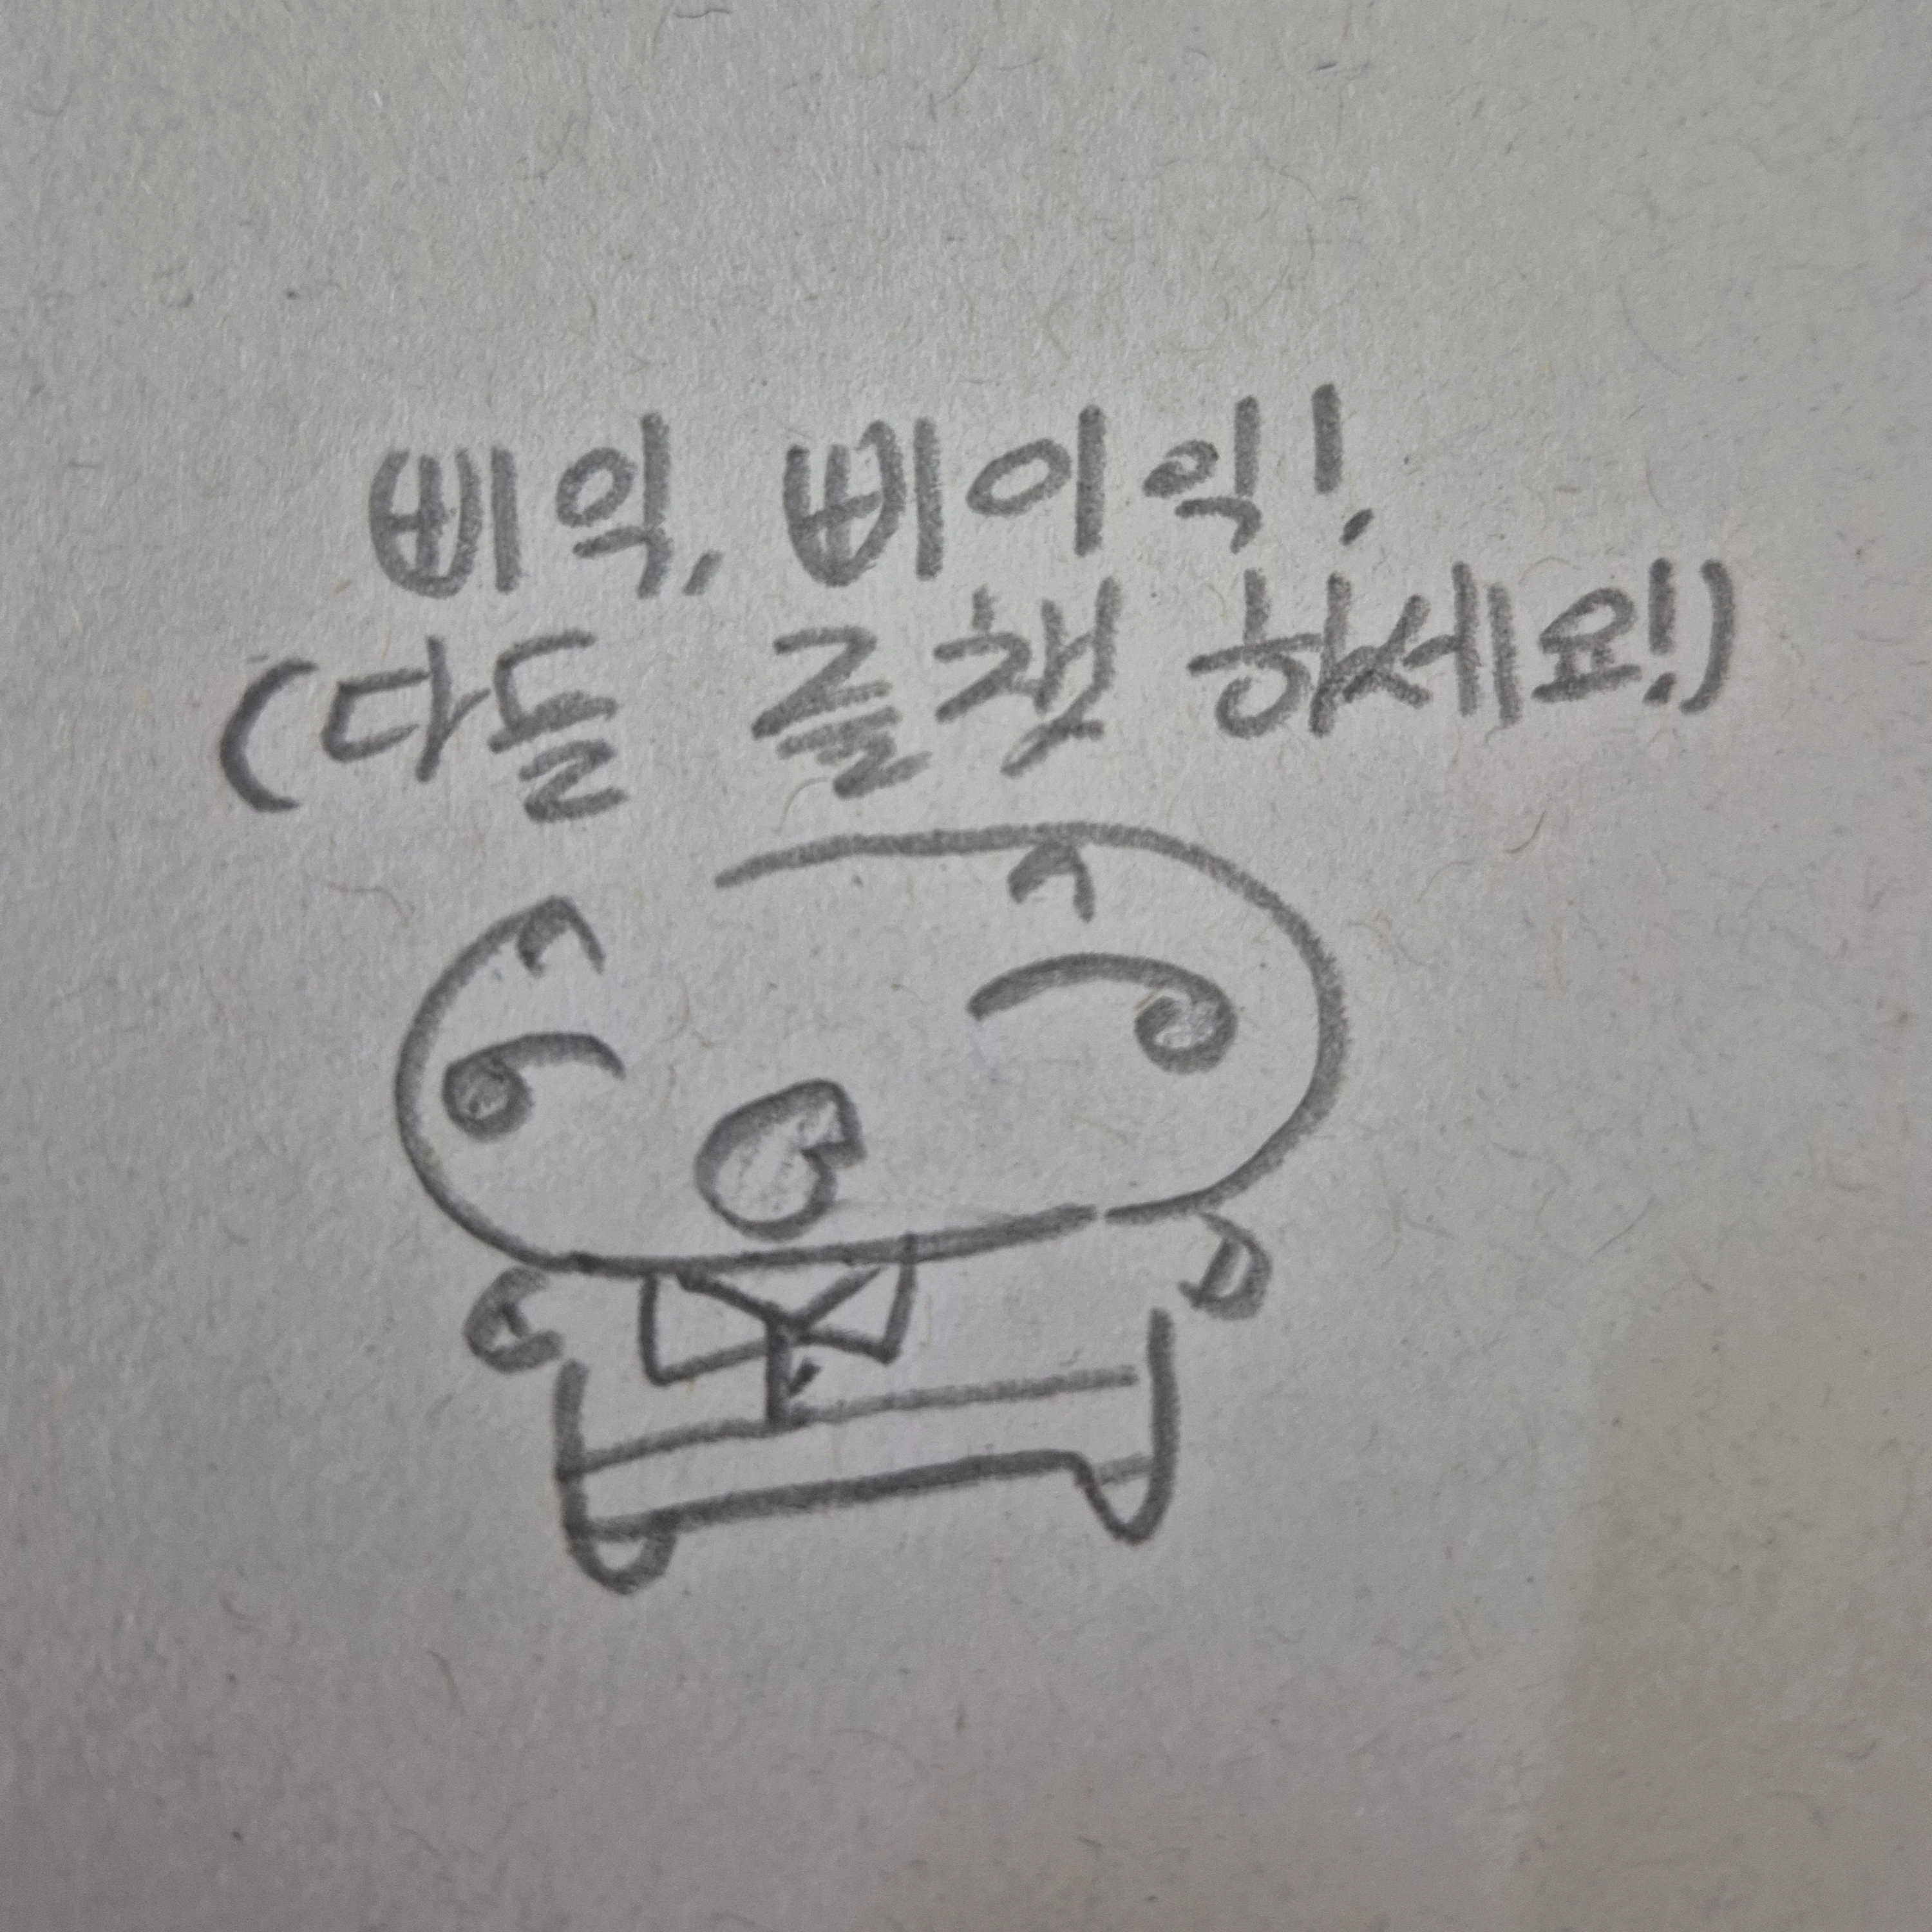 삐익, 삐이익!
(다들 즐챗 하세요!)